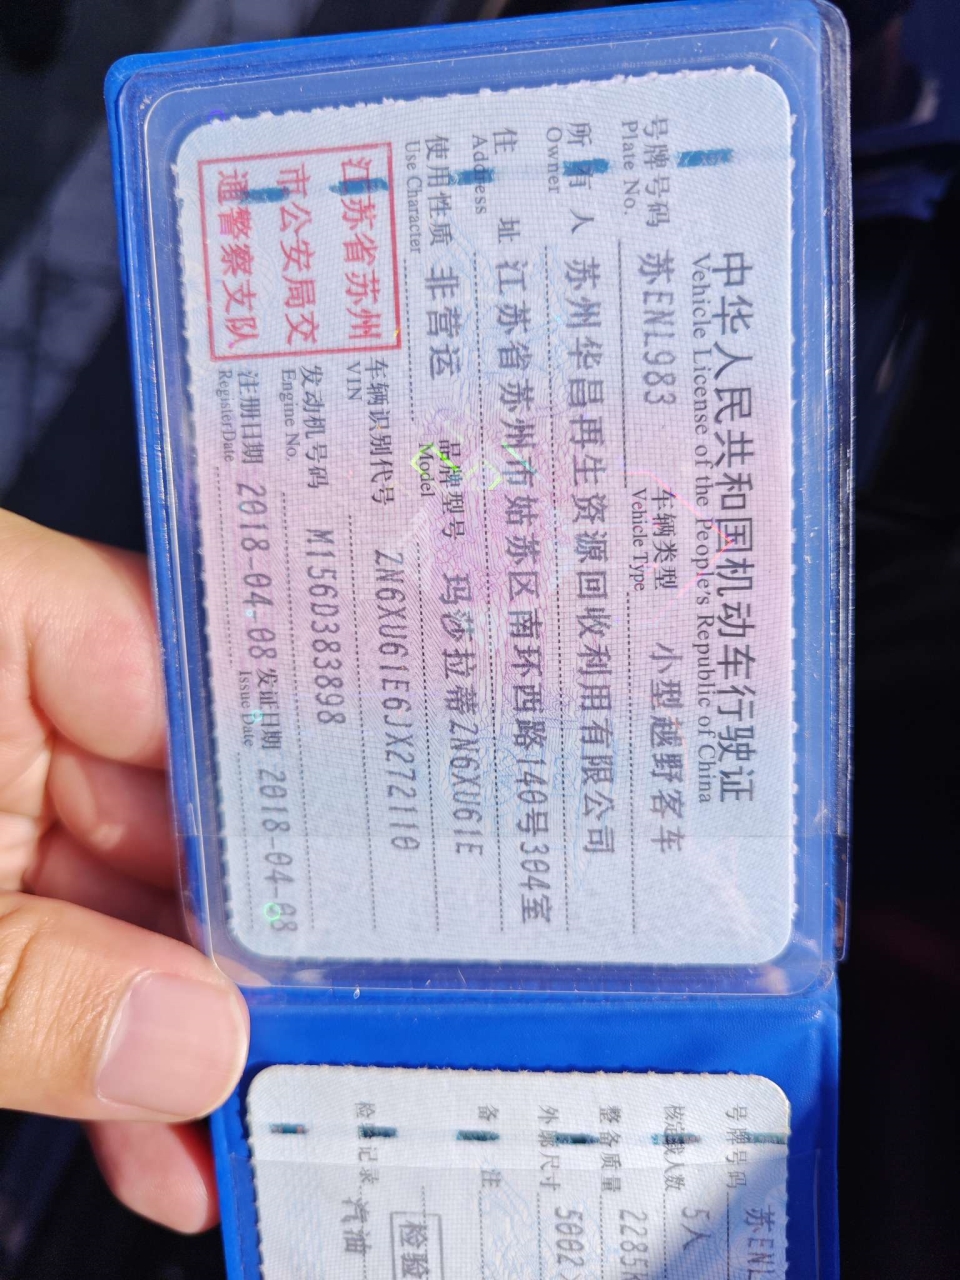 中华人民共和国机动车行驶证
Vehicle License of the People's Republic of China
号牌号码 苏ENL983 车辆类型 小型越野客车
Plate No. Vehicle Type
所有人 苏州华昌再生资源回收利用有限公司
Owner
住址 江苏省苏州市姑苏区南环西路140号304室
Address
使用性质 非营运 品牌型号 玛莎拉蒂ZN6XU61E
Use Character Model
江苏省苏州
市公安局交
通警察支队
车辆识别代号 ZN6XU61E6JX272110
VIN
发动机号码 M156D383898
Engine No.
注册日期 2018-04-08 发证日期 2018-04-08
Register Date Issue Date
号牌号码 苏ENL
核定载人数 5人
整备质量 2285k
外廓尺寸 5002×
备注
检验
检验记录 汽油